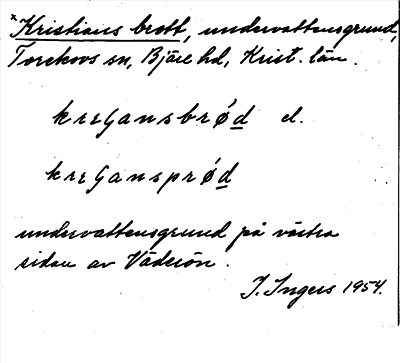 *Kristians brott, undervattensgrund,
Torekovs sn, Bjäre hd, Krist. län.
krɛʃansbrǿd el.
krɛʃansprǿd
undervattensgrund på västra
sidan av Väderön.
I. Ingers 1954.